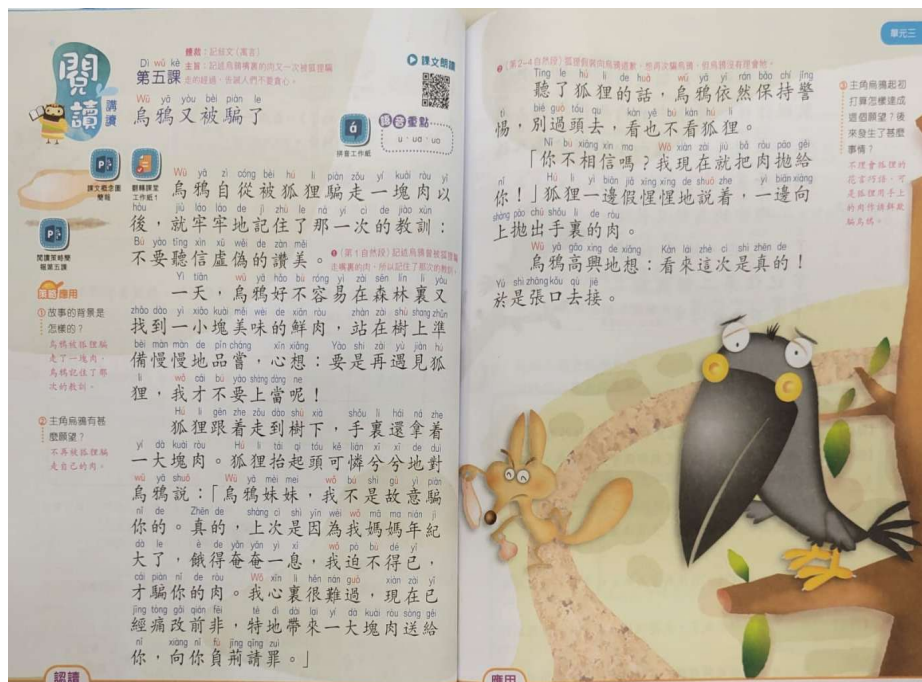 閱讀
講讀
Dì wǔ kè
第五課
體裁：記敍文（寓言）
主旨：記述烏鴉嘴裏的肉又一次被狐狸騙
走的經過，告誡人們不要貪心。
課文朗讀
Wū yā yòu bèi piàn le
烏鴉又被騙了
語音重點
u、ua、uo
拼音工作紙
課文概念圖
簡報
翻轉課堂
工作紙1
閱讀策略簡
報第五課
策略應用
①故事的背景是
怎樣的？
烏鴉被狐狸騙
走了一塊肉。
烏鴉記住了那
次的教訓。
②主角烏鴉有甚
麼願望？
不再被狐狸騙
走自己的肉。
Wū yā zì cóng bèi hú li piàn zǒu yí kuài ròu yǐ
烏鴉自從被狐狸騙走了一塊肉以
hòu jiù láo láo de jì zhù le nà yí cì de jiào xùn
後，就牢牢地記住了那一次的教訓：
Bú yào tīng xìn xū wěi de zàn měi
不要聽信虛偽的讚美。
①（第1自然段）記述烏鴉曾被狐狸騙
走嘴裏的肉，所以記住了那次的教訓。
Yì tiān wū yā hǎo bu róng yì zài sēn lín li yòu
一天，烏鴉好不容易在森林裏又
zhǎo dào yì xiǎo kuài měi wèi de xiān ròu zhàn zài shù shang zhǔn
找到一小塊美味的鮮肉，站在樹上準
bèi màn màn de pǐn cháng xīn xiǎng Yào shi zài yù jiàn hú
備慢慢地品嘗，心想：要是再遇見狐
li wǒ cái bú yào shàng dàng ne
狸，我才不要上當呢！
Hú li gēn zhe zǒu dào shù xià shǒu li hái ná zhe
狐狸跟着走到樹下，手裏還拿着
yí dà kuài ròu Hú li tái qǐ tóu kě lián xī xī de duì
一大塊肉。狐狸抬起頭可憐兮兮地對
wū yā shuō Wū yā mèi mei wǒ bú shì gù yì piàn
烏鴉說：「烏鴉妹妹，我不是故意騙
nǐ de Zhēn de shàng cì shì yīn wèi wǒ mā ma nián jì
你的。真的，上次是因為我媽媽年紀
dà le è de yǎn yǎn yì xī wǒ pò bù dé yǐ
大了，餓得奄奄一息，我迫不得已，
cái piàn nǐ de ròu Wǒ xīn li hěn nán guò xiàn zài yǐ
才騙你的肉。我心裏很難過，現在已
jīng tòng gǎi qián fēi tè dì dài lai yí dà kuài ròu sòng gěi
經痛改前非，特地帶來一大塊肉送給
nǐ xiàng nǐ fù jīng qǐng zuì
你，向你負荊請罪。」
認讀
單元三
②（第2-4自然段）狐狸假裝向烏鴉道歉，想再次騙烏鴉，但烏鴉沒有理會牠。
Tīng le hú li de huà wū yā yī rán bǎo chí jǐng
聽了狐狸的話，烏鴉依然保持警
tì bié guò tóu qù kàn yě bú kàn hú li
惕，別過頭去，看也不看狐狸。
Nǐ bù xiāng xìn ma Wǒ xiàn zài jiù bǎ ròu pāo gěi
「你不相信嗎？我現在就把肉拋給
nǐ Hú li yì biān jiǎ xīng xīng de shuō zhe yì biān xiàng
你！」狐狸一邊假惺惺地說着，一邊向
shàng pāo chū shǒu li de ròu
上拋出手裏的肉。
Wū yā gāo xìng de xiǎng Kàn lái zhè cì shì zhēn de
烏鴉高興地想：看來這次是真的！
Yú shì zhāng kǒu qù jiē
於是張口去接。
③主角烏鴉起初
打算怎樣達成
這個願望？後
來發生了甚麼
事情？
不理會狐狸的
花言巧語，可
是狐狸用手上
的肉作誘餌欺
騙烏鴉。
應用